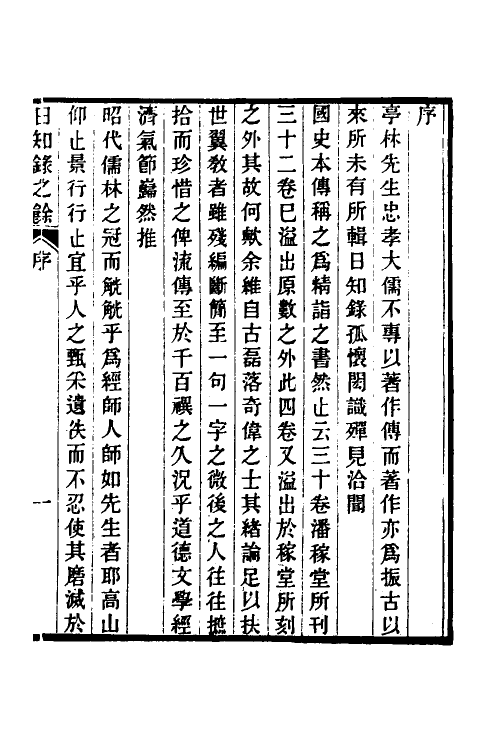 序
亭林先生忠孝大儒不專以著作傳而著作亦爲振古以
來所未有所輯日知錄孤懷閎識殫見洽聞
國史本傳稱之爲精詣之書然止云三十卷潘稼堂所刊
三十二卷已溢出原數之外此四卷又溢出於稼堂所刻
之外其故何歟余維自古磊落奇偉之士其緒論足以扶
世翼教者雖殘編斷簡至一句一字之微後之人往往摭
拾而珍惜之俾流傳至於千百禩之久況乎道德文學經
濟氣節巋然推
昭代儒林之冠而觥觥乎爲經師人師如先生者耶高山
仰止景行行止宜乎人之甄采遺佚而不忍使其磨滅於
日知錄之餘 序 一